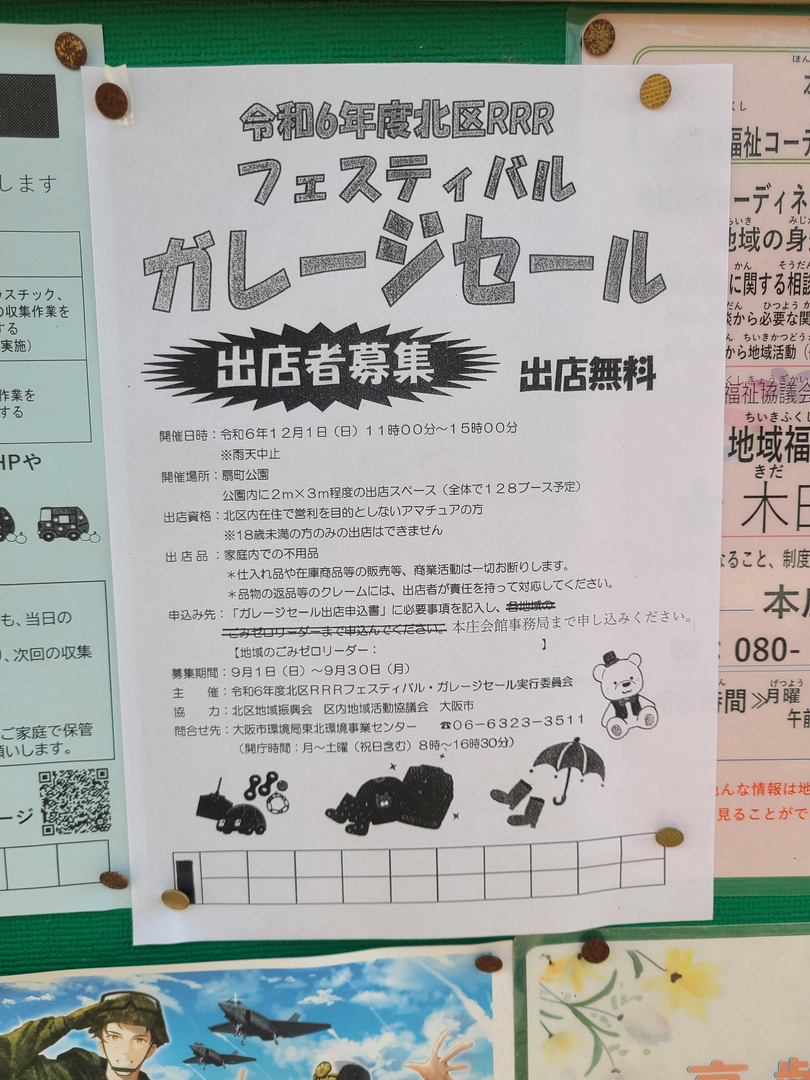 令和6年度北区RRR
フェスティバル
ガレージセール
出店者募集
出店無料
開催日時：令和6年12月1日（日）11時00分～15時00分
※雨天中止
開催場所：扇町公園
公園内に2m×3m程度の出店スペース（全体で128ブース予定）
出店資格：北区内在住で営利を目的としないアマチュアの方
※18歳未満の方のみの出店はできません
出店品：家庭内での不用品
＊仕入れ品や在庫商品等の販売等、商業活動は一切お断りします。
＊品物の返品等のクレームには、出店者が責任を持って対応してください。
申込み先：「ガレージセール出店申込書」に必要事項を記入し、各地域の
ごみゼロリーダーまで申込んでください。本庄会館事務局まで申し込みください。
【地域のごみゼロリーダー：　　　　】
募集期間：9月1日（日）～9月30日（月）
主　催：令和6年度北区RRRフェスティバル・ガレージセール実行委員会
協　力：北区地域振興会　区内地域活動協議会　大阪市
問合せ先：大阪市環境局東北環境事業センター　☎06-6323-3511
（開庁時間：月～土曜（祝日含む）8時～16時30分）
します
ラスチック、
の収集作業を
する
実施）
作業を
する
HPや
も、当日の
、次回の収集
ご家庭で保管
願いします。
ージ
福祉コーデ
ーディネ
ちいき
地域の身
かん　そうだん
に関する相談
だん　ひつよう
から必要な関
ちいきかつどう
から地域活動
福祉協議会
ちいきふくし
地域福
きだ
木田
なること、制度
本庄
080-
時間≫
げつよう
月曜
午前
んな情報は地
見ることがで